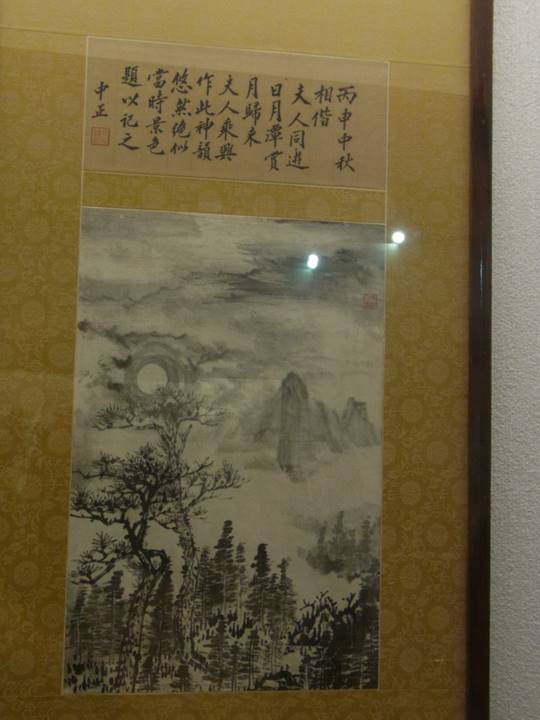 丙申中秋
相偕
夫人同遊
日月潭賞
月歸來
夫人乘興
作此神韻
悠然絶似
當時景色
題以記之
中正